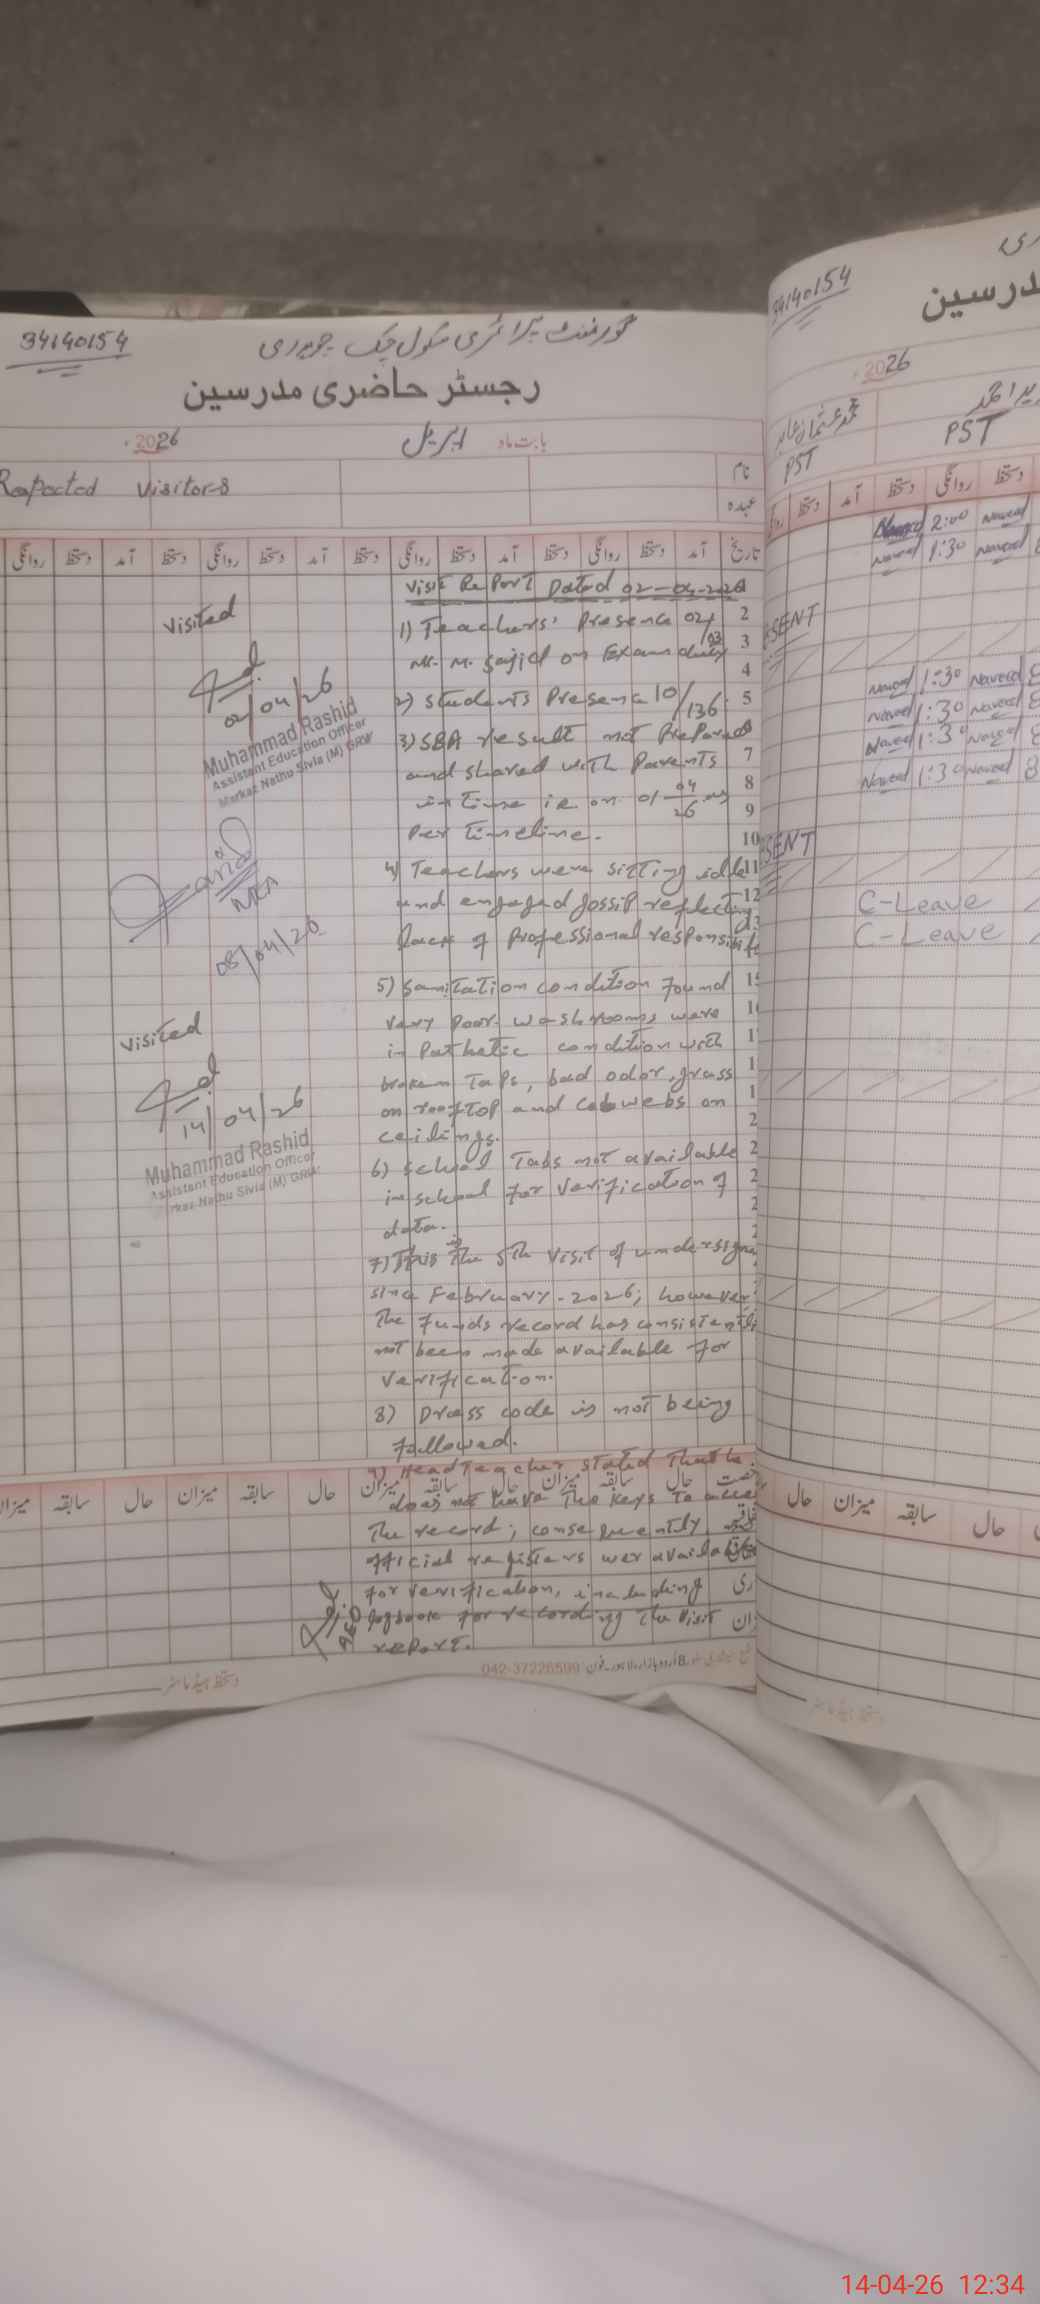 34140154
گورنمنٹ پرائمری سکول چک چوہدری
رجسٹر حاضری مدرسین
2026
بابت ماہ اپریل
نام
عہدہ
Respected Visitors
تاریخ آمد دستخط روانگی دستخط آمد دستخط روانگی دستخط آمد دستخط روانگی دستخط آمد دستخط روانگی
Visit Report Dated 02-04-2026
1) Teachers' Presence 02/03
Mr. M. Sajid on Exam duty
2) Students Presence 10/136
3) SBA result not Prepared
and shared with Parents
in time ie on 01 04/26 as
Per timeline.
4) Teachers were sitting idle
and engaged gossip reflecting
lack of Professional
5) Sanitation condition found
very poor. washrooms were
in Pathetic condition with
broken Taps, bad odor, grass
on rooftop and cobwebs on
ceilings.
6) School Tabs not available
in school for verification of
data.
7) This is the 5th visit of
since February-2026; however
The funds record has
not been made available for
verification.
8) Dress code is not being
followed.
9) Head Teacher stated That he
does not have The keys To
The record; consequently,
official registers wer
for verification, including
logbook for recording The visit
report.
AEO
2
3
4
5
7
8
9
10
11
12
Visited
02/04/26
Muhammad Rashid
Assistant Education Officer
Markaz Nathu Sivia (M) GRW
MEA
08/04/26
Visited
14/04/26
Muhammad Rashid
Assistant Education Officer
Markaz Nathu Sivia (M) GRW
حال سابقہ میزان حال سابقہ میزان حال سابقہ میزان حال سابقہ میزان
042-37226599
دستخط ہیڈ ماسٹر
34140154
مدرسین
2026
محمد عثمان عابد
PST
PST
آمد دستخط روانگی دستخط
Naveed 2:00 Naveed
Naveed 1:30 Naveed 8
SENT
Naveed 1:30 Naveed 8
Naveed 1:30 Naveed 8
Naveed 1:30 Naveed 8
Naveed 1:30 Naveed 8
SENT
C-Leave
C-Leave
حال میزان سابقہ حال
14-04-26 12:34